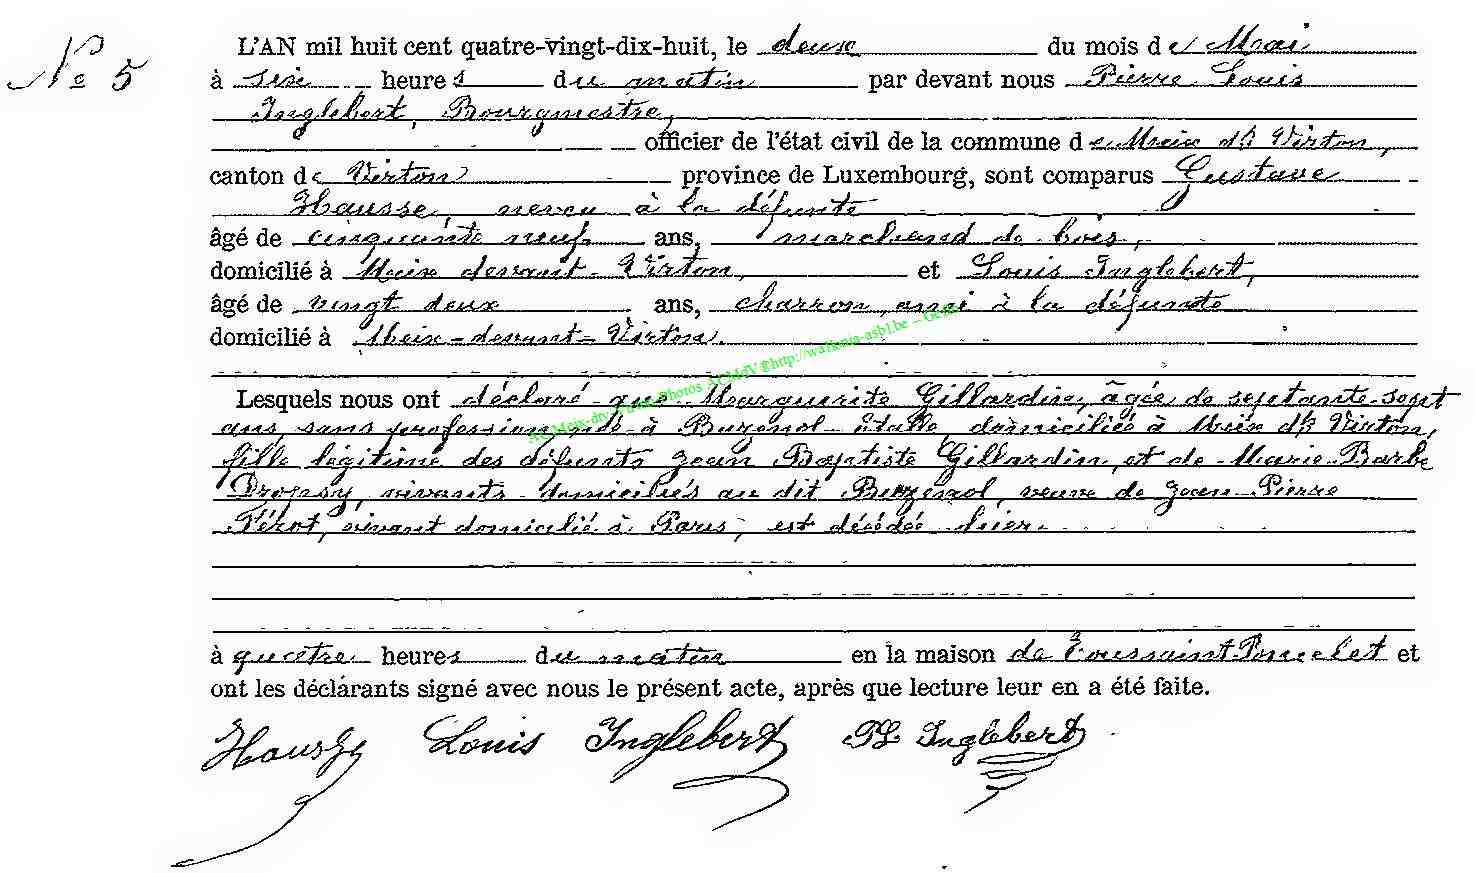 N° 5
L'AN mil huit cent quatre-vingt-dix-huit, le deux du mois de Mai
à six heures du matin par devant nous Pierre Louis
Inglebert, Bourgmestre,
officier de l'état civil de la commune de Meix dt Virton,
canton de Virton province de Luxembourg, sont comparus Gustave
Hausse, neveu à la défunte
âgé de cinquante neuf ans, marchand de bois,
domicilié à Meix devant-Virton, et Louis Inglebert,
âgé de vingt deux ans, charron, ami à la défunte
domicilié à Meix-devant-Virton.
Lesquels nous ont déclaré que Marguerite Gillardin, âgée de septante-sept
ans, sans profession, née à Buzenol-Etalle domiciliée à Meix dt Virton,
fille légitime des défunts Jean Baptiste Gillardin, et de Marie-Barbe
Dropsy, vivants domiciliés au dit Buzenol, veuve de Jean-Pierre
Pérot, vivant domicilié à Paris, est décédée hier
à quatre heures du matin en la maison de Toussaint Poncelet et
ont les déclarants signé avec nous le présent acte, après que lecture leur en a été faite.
Hausse Louis Inglebert PL Inglebert